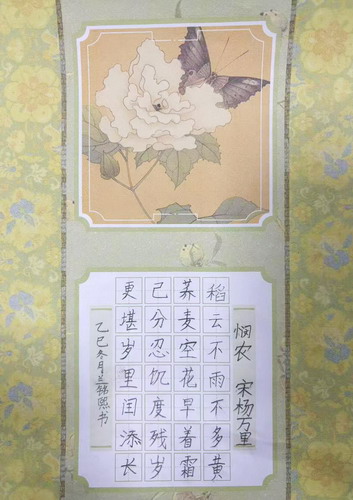 悯农 宋 杨万里
稻云不雨不多黄
荞麦空花早着霜
已分忍饥度残岁
更堪岁里闰添长
乙巳冬月兰熙书